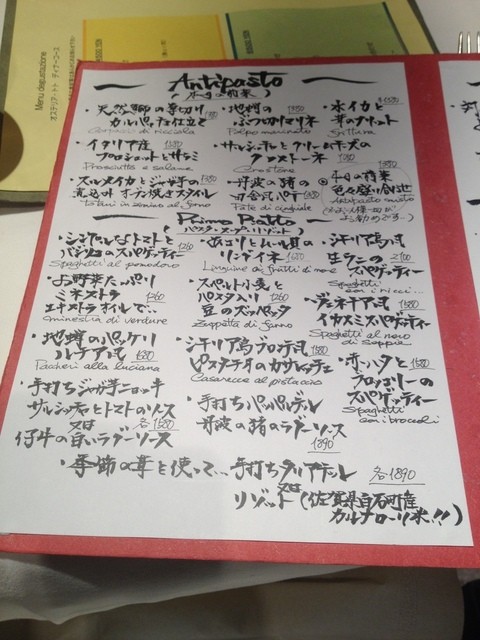 Menu degustazione
オステリア・トト ディナーコース
Antipasto
(本日の前菜)
・天然鰤の厚切り
カルパッチョ仕立て
Carpaccio di ricciola
・地蛸の
ぶつ切りマリネ
Polpo marinato
・本イカと
芽のフリット
Frittura
・イタリア産
プロシュットとサラミ
Prosciutto e salame
・サルシッチャとクリームチーズの
クロストーネ
Crostone
・スルメイカとジャガ芋の
煮込み オーブン焼きスタイル
Totani in zimino al forno
・丹波の猪の
田舎風パテ
Pate di cinghiale
本日の前菜
色々盛り合せ
Antipasto misto
Primo Piatto
(パスタ・スープ・リゾット)
・シンプルなトマトと
バジリコのスパゲッティー 1260
Spaghetti al pomodoro
・あさりとムール貝の
リングイネ 1680
Linguine di frutti di mare
・シチリア島風
生ウニの 2100
スパゲッティー
Spaghetti
con i ricci...
・お野菜たっぷり
ミネストラ 1260
エキストラオイルで...
minestra di verdure
・スペルト小麦と
パスタ入り 1260
豆のズッパ
Zuppetta di farro
・ヴェネチア風 1580
イカスミスパゲッティー
Spaghetti al nero
di seppie
・地蛸のパッケリ
ルチアーナ風 1680
Paccheri alla luciana
・シチリア島ブロンテ風 1580
ピスタチオのカサレッチェ
Casarecce al pistacchio
・赤ハタと 1580
ブロッコリーの
スパゲッティー
Spaghetti
con i broccoli
・手打ちジャガ芋ニョッキ
サルシッチャとトマトのソース
又は 各1580
仔牛の白いラグーソース
・手打ちパッパルデッレ
丹波の猪のラグーソース
1890
・季節の茸を使って... 手打ちタリアテッレ 各1890
又は
リゾット(佐賀県白石町産
カルナローリ米!!!)